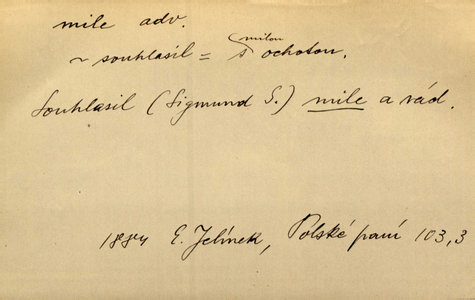 mile adv.
~ souhlasil = s milou ochotou.
Souhlasil (Sigmund S.) mile a rád.
1884 E. Jelínek, Polské paní 103,3